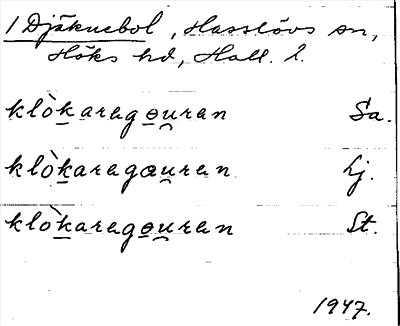 1 Djäknebol, Hasslövs sn,
Höks hd, Hall. l.
klòkaragɵu̯ran Sa.
klòkaragœu̯ran Lj.
klòkaragɵu̯ran St.
1947.